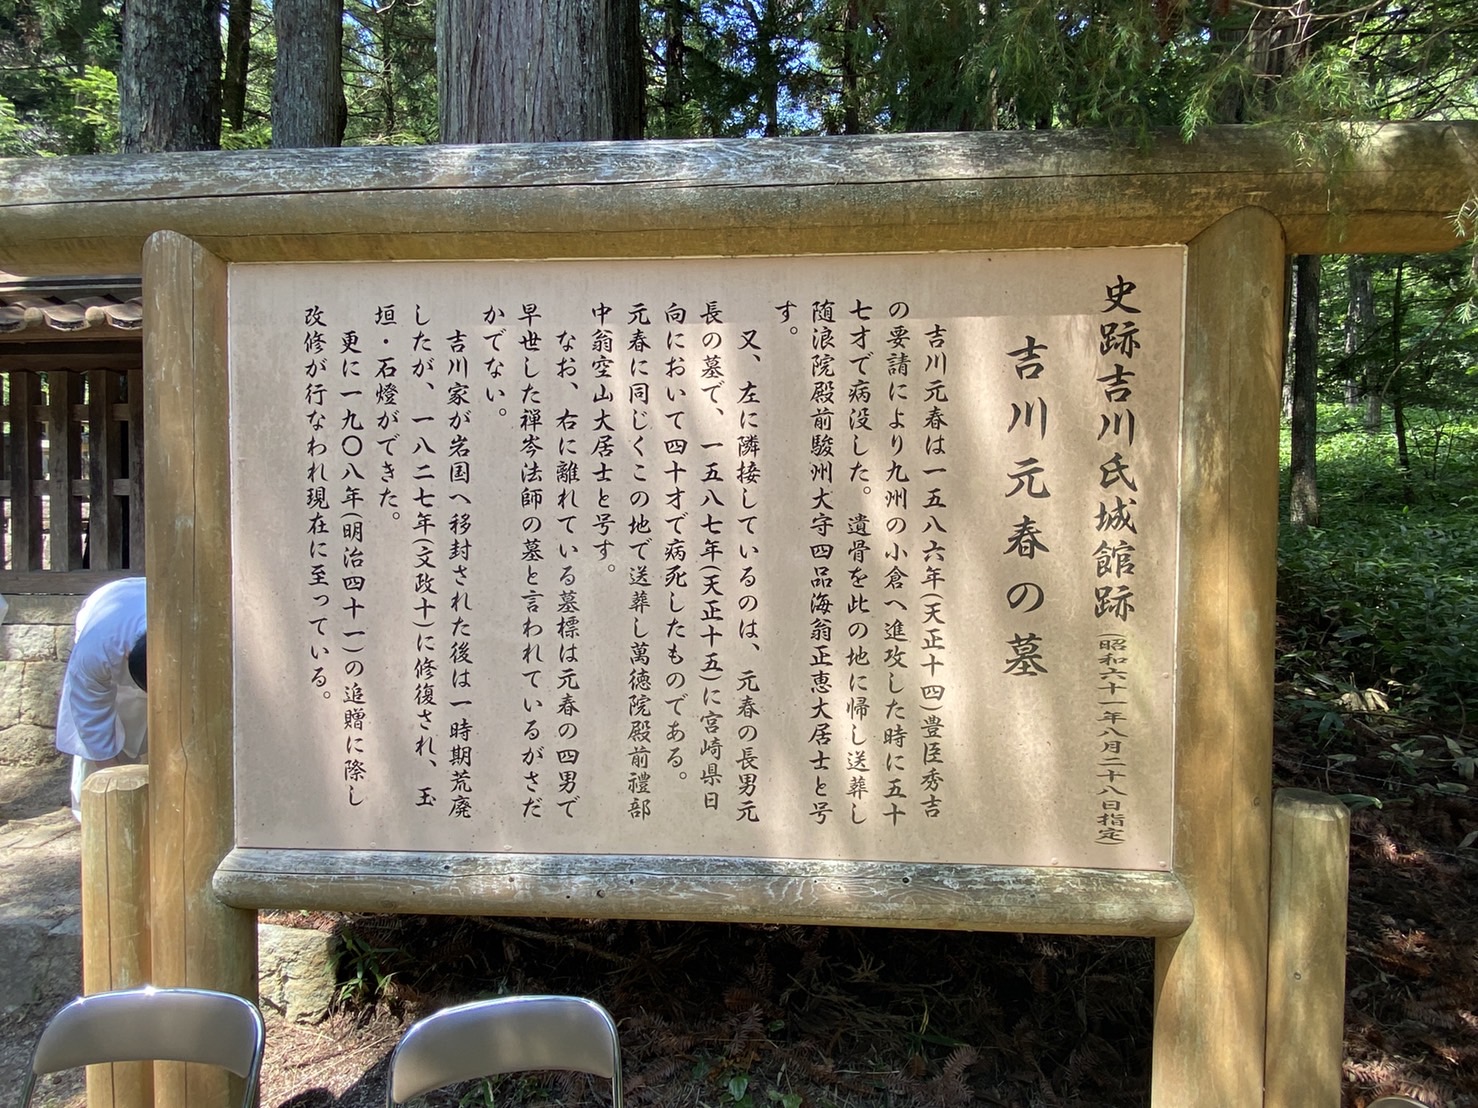 史跡吉川氏城館跡(昭和六十一年八月二十八日指定)
吉川元春の墓
吉川元春は一五八六年(天正十四)豊臣秀吉
の要請により九州の小倉へ進攻した時に五十
七才で病没した。遺骨を此の地に帰し送葬し
随浪院殿前駿州大守四品海翁正恵大居士と号
す。
又、左に隣接しているのは、元春の長男元
長の墓で、一五八七年(天正十五)に宮崎県日
向において四十才で病死したものである。
元春に同じくこの地で送葬し萬徳院殿前禮部
中翁空山大居士と号す。
なお、右に離れている墓標は元春の四男で
早世した禅岑法師の墓と言われているがさだ
かでない。
吉川家が岩国へ移封された後は一時期荒廃
したが、一八二七年(文政十)に修復され、玉
垣・石燈ができた。
更に一九〇八年(明治四十一)の追贈に際し
改修が行なわれ現在に至っている。